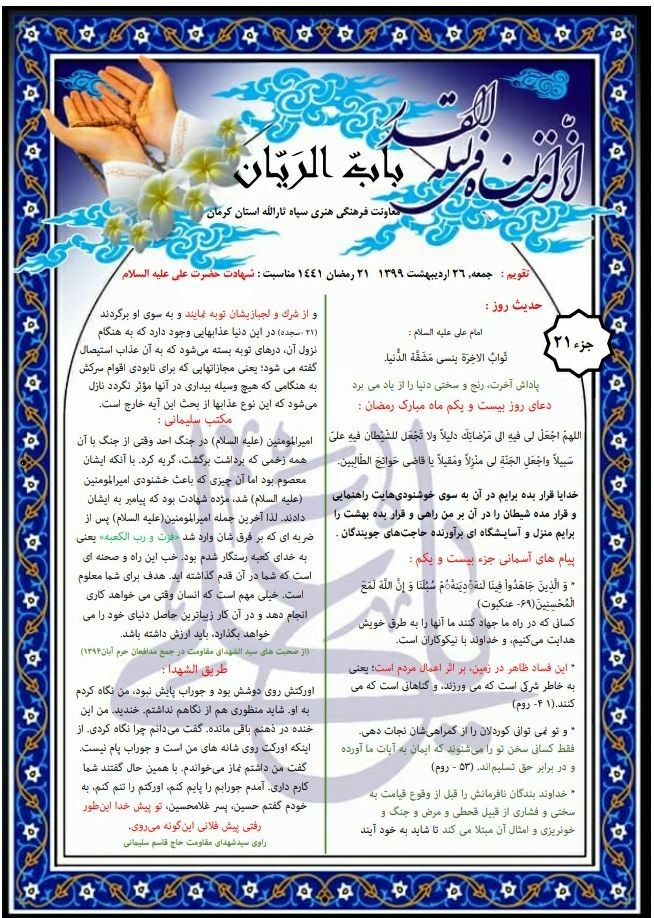 إنّا أنزلناه فی لیلة القدر
بابُ الریّان
معاونت فرهنگی هنری سپاه ثارالله استان کرمان
تقویم : جمعه، ۲۶ اردیبهشت ۱۳۹۹ ۲۱ رمضان ۱۴۴۱ مناسبت : شهادت حضرت علی علیه السلام
جزء ۲۱
حدیث روز :
امام علی علیه السلام :
ثَوابُ الاخِرَة ینسی مَشَقَّةَ الدُّنیا.
پاداش آخرت، رنج و سختی دنیا را از یاد می برد
دعای روز بیست و یکم ماه مبارک رمضان :
اللهمّ اجْعَلْ لی فیهِ الی مَرْضاتِكَ دلیلاً ولا تَجْعَل للشّیْطان فیهِ علیّ
سَبیلاً واجْعَلِ الجَنّةِ لی منْزِلاً ومَقیلاً یا قاضی حَوائجَ الطّالِبین.
خدایا قرار بده برایم در آن به سوی خوشنودی‌هایت راهنمایی
و قرار مده شیطان را در آن بر من راهی و قرار بده بهشت را
برایم منزل و آسایشگاه ای برآورنده حاجت‌های جویندگان .
پیام های آسمانی جزء بیست و یکم :
* وَ الَّذِینَ جَاهَدُوا فِینَا لَنَهۡدِیَنَّهُمۡ سُبُلَنَا وَ إِنَّ اللَّهَ لَمَعَ
الْمُحْسِنِینَ(۶۹- عنکبوت)
کسانی که در راه ما جهاد کنند ما آنها را به طرق خویش
هدایت می‌کنیم، و خداوند با نیکوکاران است.
* این فساد ظاهر در زمین، بر اثر اعمال مردم است؛ یعنی
به خاطر شرکی است که می ورزند، و گناهانی است که می
کنند.(۴۱ - روم)
* و تو نمی توانی کوردلان را از گمراهی‌شان نجات دهی.
فقط کسانی سخن تو را می‌شنوند که ایمان به آیات ما آورده
و در برابر حق تسلیم‌اند. (۵۳ - روم)
* خداوند بندگان نافرمانش را قبل از وقوع قیامت به
سختی و فشاری از قبیل قحطی و مرض و جنگ و
خونریزی و امثال آن مبتلا می کند تا شاید به خود آیند
و از شرك و لجبازیشان توبه نمایند و به سوی او برگردند
(۲۱ -سجده) در این دنیا عذابهایی وجود دارد که به هنگام
نزول آن، درهای توبه بسته می‌شود که به آن عذاب استیصال
گفته می شود؛ یعنی مجازاتهایی که برای نابودی اقوام سرکش
به هنگامی که هیچ وسیله بیداری در آنها مؤثر نگردد نازل
می‌شود که این نوع عذابها از بحث این آیه خارج است.
مکتب سلیمانی :
امیرالمومنین (علیه السلام) در جنگ احد وقتی از جنگ با آن
همه زخمی که برداشت برگشت، گریه کرد. با آنکه ایشان
معصوم بود اما آن چیزی که باعث خشنودی امیرالمومنین
(علیه السلام) شد، مژده شهادت بود که پیامبر به ایشان
دادند. لذا آخرین جمله امیرالمومنین(علیه السلام) پس از
ضربه ای که بر فرق شان وارد شد «فزت و رب الکعبه» یعنی
به خدای کعبه رستگار شدم بود. خب این راه و صحنه ای
است که شما در آن قدم گذاشته اید. هدف برای شما معلوم
است. خیلی مهم است که انسان وقتی می خواهد کاری
انجام دهد و در آن کار زیباترین حاصل دنیای خود را می
خواهد بگذارد، باید ارزش داشته باشد.
(از صحبت های سید الشهدای مقاومت در جمع مدافعان حرم آبان۱۳۹۴)
طریق الشهدا :
اورکتش روی دوشش بود و جوراب پایش نبود، من نگاه کردم
به او. شاید منظوری هم از نگاهم نداشتم. خندید. من این
خنده در ذهنم باقی مانده. گفت می‌دانم چرا نگاه کردی. از
اینکه اورکت روی شانه های من است و جوراب پام نیست.
گفت من داشتم نماز می‌خواندم. با همین حال گفتند شما
کارم داری. آمدم جورابم را پایم کنم، اورکتم را تنم کنم، به
خودم گفتم حسین، پسر غلامحسین، تو پیش خدا این‌طور
رفتی پیش فلانی این‌گونه می‌روی.
راوی سیدشهدای مقاومت حاج قاسم سلیمانی